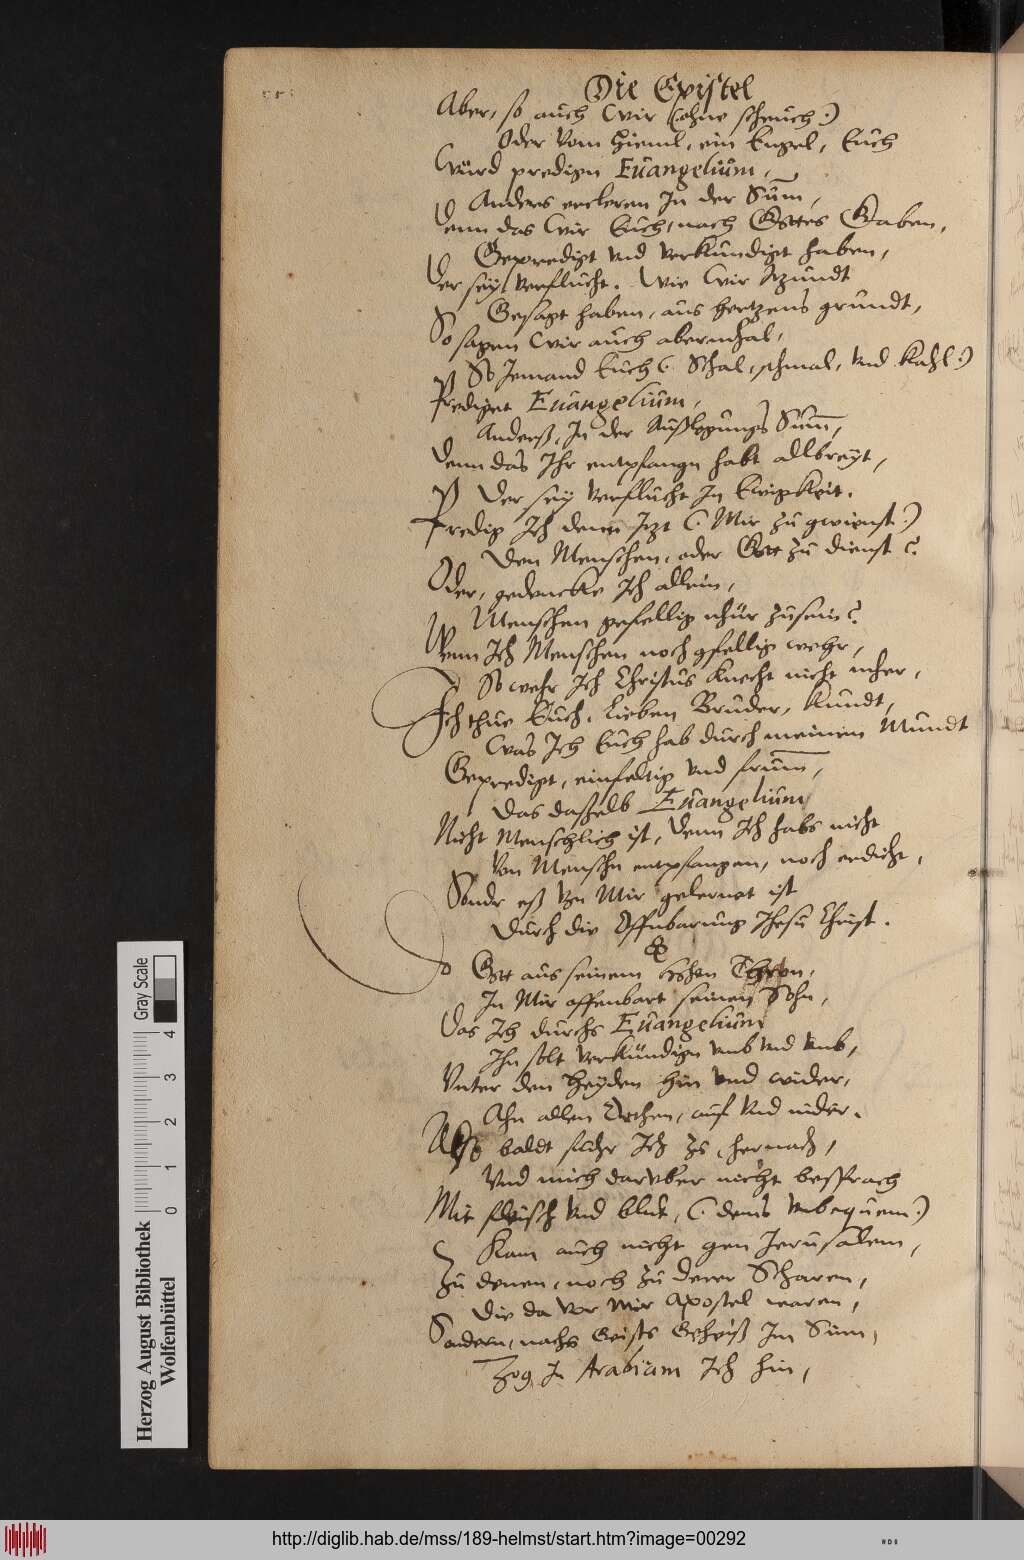 Die Epistel
Aber, so auch wir (ohne scheuch:)
Oder vom Hieml, ein Engel, Euch
Würd predign Euangelium,
Anders erkleren In der Sum̄,
Denn das wir Euch, nach Gottes Gaben,
Gepredigt vnd verkundiget haben,
Der sey verflucht. Wie wir Itzundt
Gesagt haben, aus hertzens grundt,
So sagen wir auch abermhal,
So Jemand Euch (: schmal, vnd kahl:)
Prediget Euangelium,
Anderß, In der Außlegungs Sum̄,
Denn das Ihr entpfangn habt allbreyt,
Der sey verflucht In Ewigkeit.
Predig Ich denn Itzt (: Mir zu gwienst:)
Den Menschen, oder Gott zu dienst?
Oder, gedencke Ich allein,
Menschen gefellig nhur zu sein?
Wenn Ich Menschen noch gfellig wehr,
So wehr Ich Christus Knecht nicht mher,
Ich thue Euch, Lieben Bruder, kundt,
Was Ich Euch hab durch meinen Mundt
Gepredigt, einfeltig vnd frum̄,
Das dasselb Euangelium
Nicht Menschlich ist, Denn Ich habs nicht
Von Menschn entpfangen, noch erdicht,
Sondr eß von Mir gelernet ist
Durch die Offnbarung Jhesu Christ.
So Gott aus seinem hohen Thron,
In Mir offenbart seinen Sohn,
Das Ich durchs Euangelium
Ihn solt verkündign vmb vnd vmb,
Vnter den Heyden hin vnd wider,
Ahn allen Orthen, auf vnd nider.
Also baldt fuhr Ich zu, hernach,
Vnd mich daruber nicht besprach
Mit fleisch vnd blut, (: dems vnbequem:)
Kam auch nicht gen Jerusalem,
Zu denen, noch zu derer Scharen,
Die da vor mir Apostel waren,
Sondern, nachs Geists Geheiß Im Sinn,
Zog In Arabiam Ich hin,
Gray Scale
4 3 2 1 0
Herzog August Bibliothek
Wolfenbüttel
http://diglib.hab.de/mss/189-helmst/start.htm?image=00292